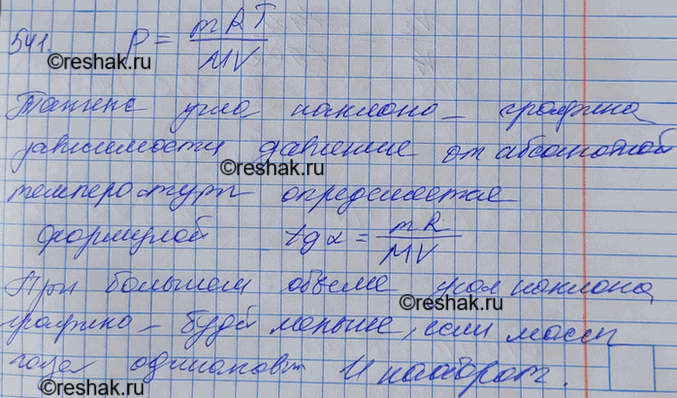 541. p = mRT / MV
©reshak.ru
©reshak.ru
Тангенс угла наклона графика
зависимости давление от абсолютной
©reshak.ru
температуры определяется
формулой tgα = mR / MV
При большем объеме угол наклона
©reshak.ru
графика будет меньше, если массы
газа одинаковы И наоборот.
©reshak.ru